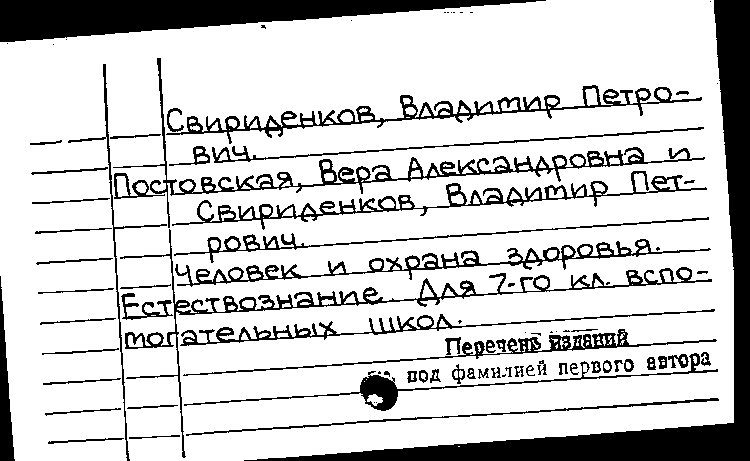 Свириденков, Владимир Петро-
вич.
Постовская, Вера Александровна и
Свириденков, Владимир Пет-
рович.
Человек и охрана здоровья.
Естествознание. Для 7-го кл. вспо-
могательных школ.
Перечень изданий
под фамилией первого автора